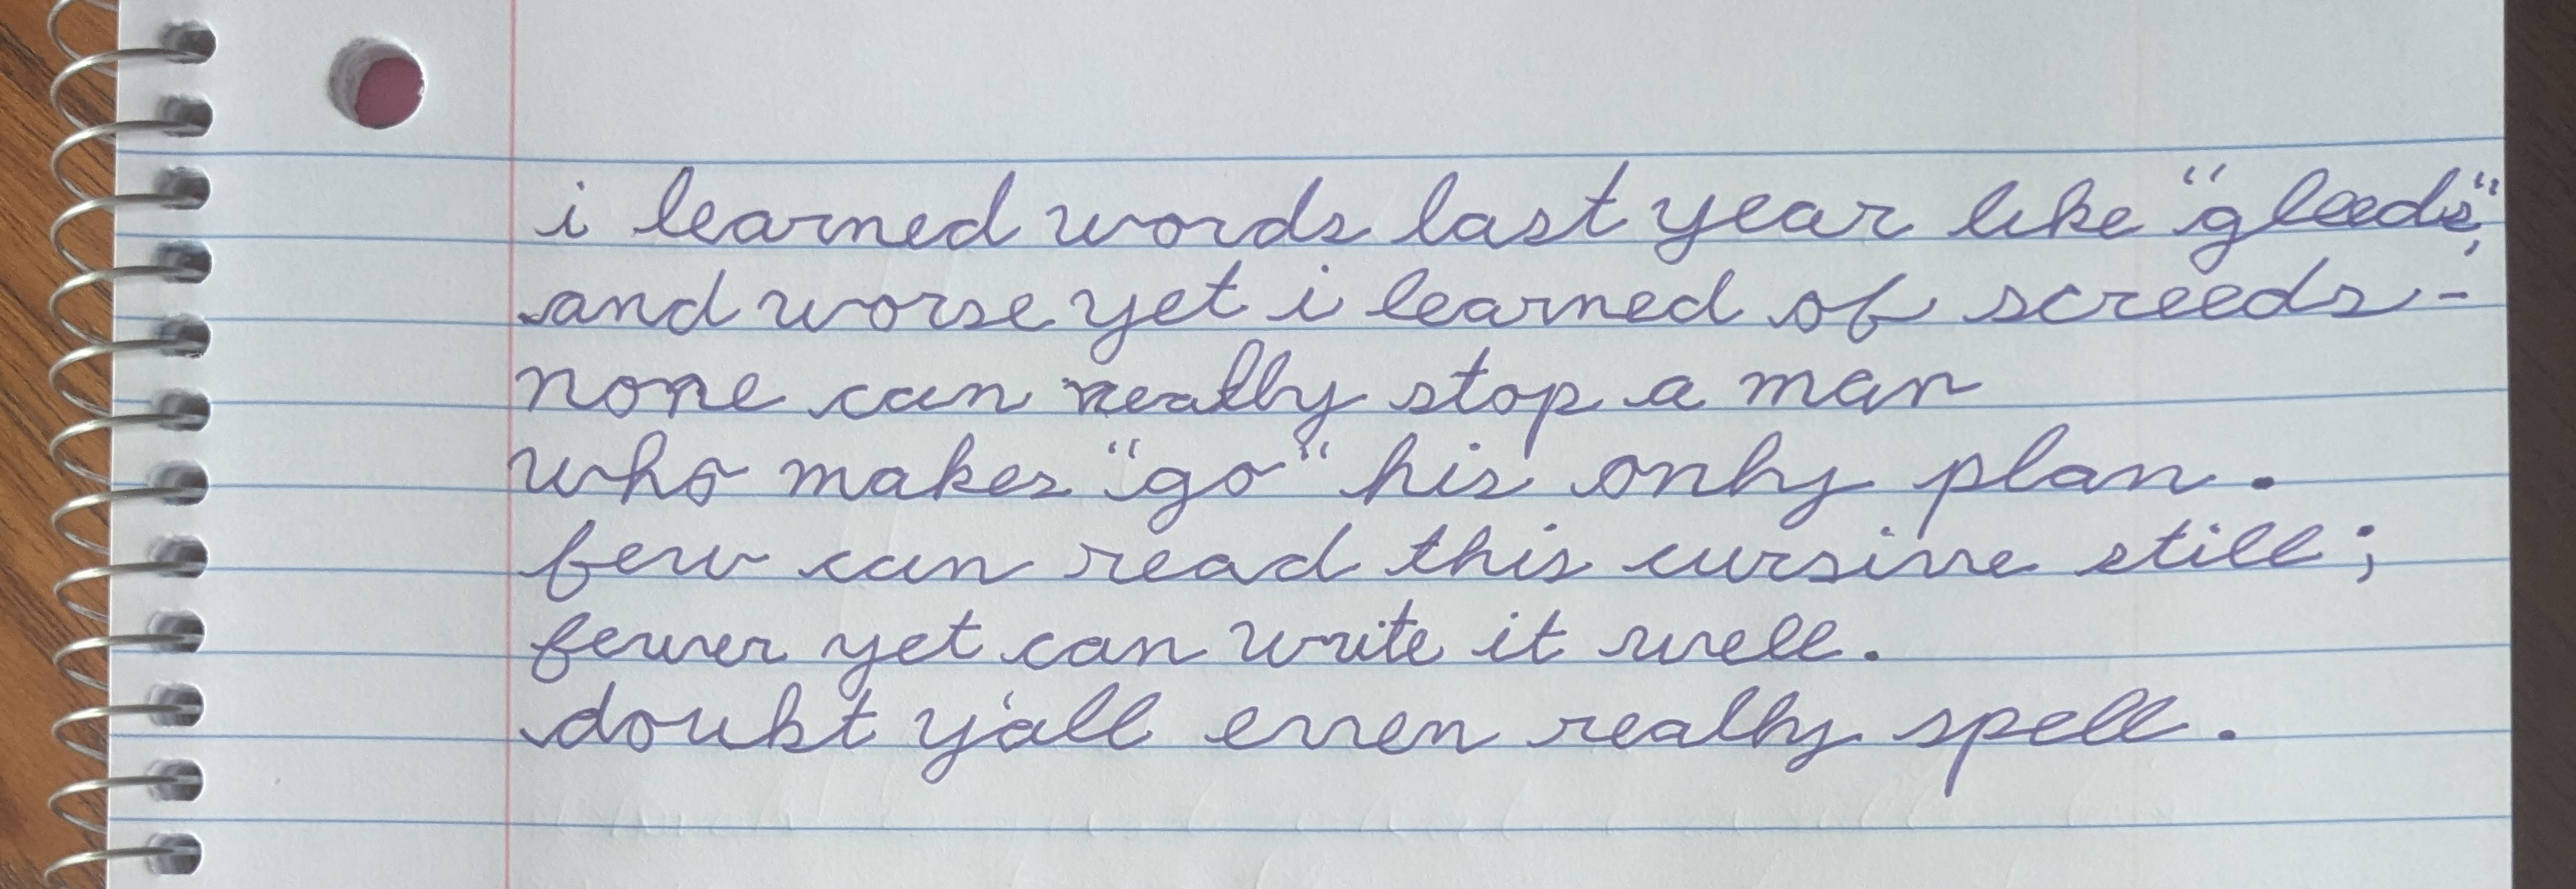 i learned words last year like "gleeds",
and worse yet i learned of screeds -
none can really stop a man
who makes "go" his only plan.
few can read this cursive still;
fewer yet can write it well.
doubt y'all even really spell.